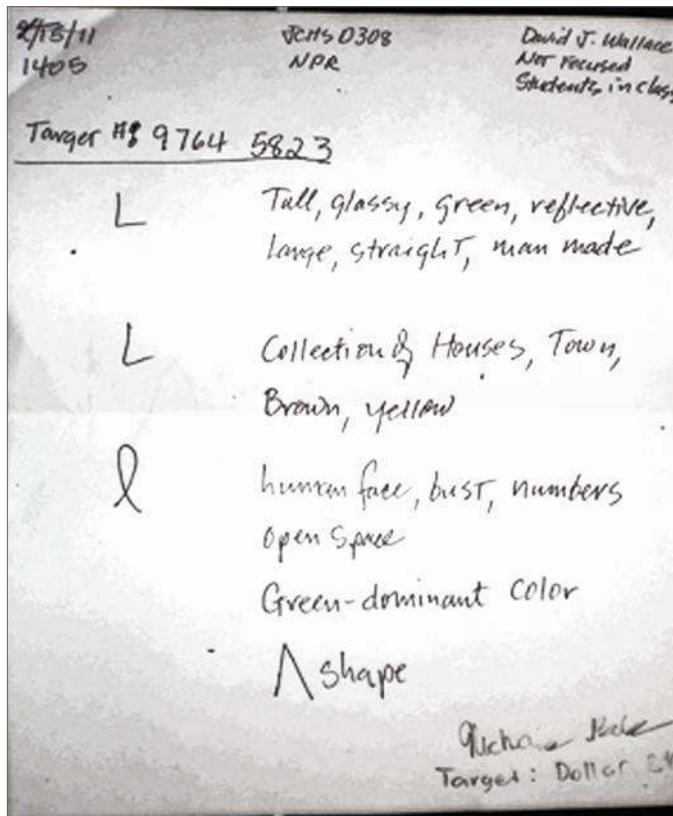 2/15/11
1405
JCHS D308
NPR
David J. Wallace
Not Focused
Students in class
Target #: 9764 5823
L
Tall, glassy, green, reflective,
large, straight, man made
L
Collection of Houses, Town,
Brown, yellow
human face, bust, numbers
open space
Green-dominant color
shape
Target: Dollar